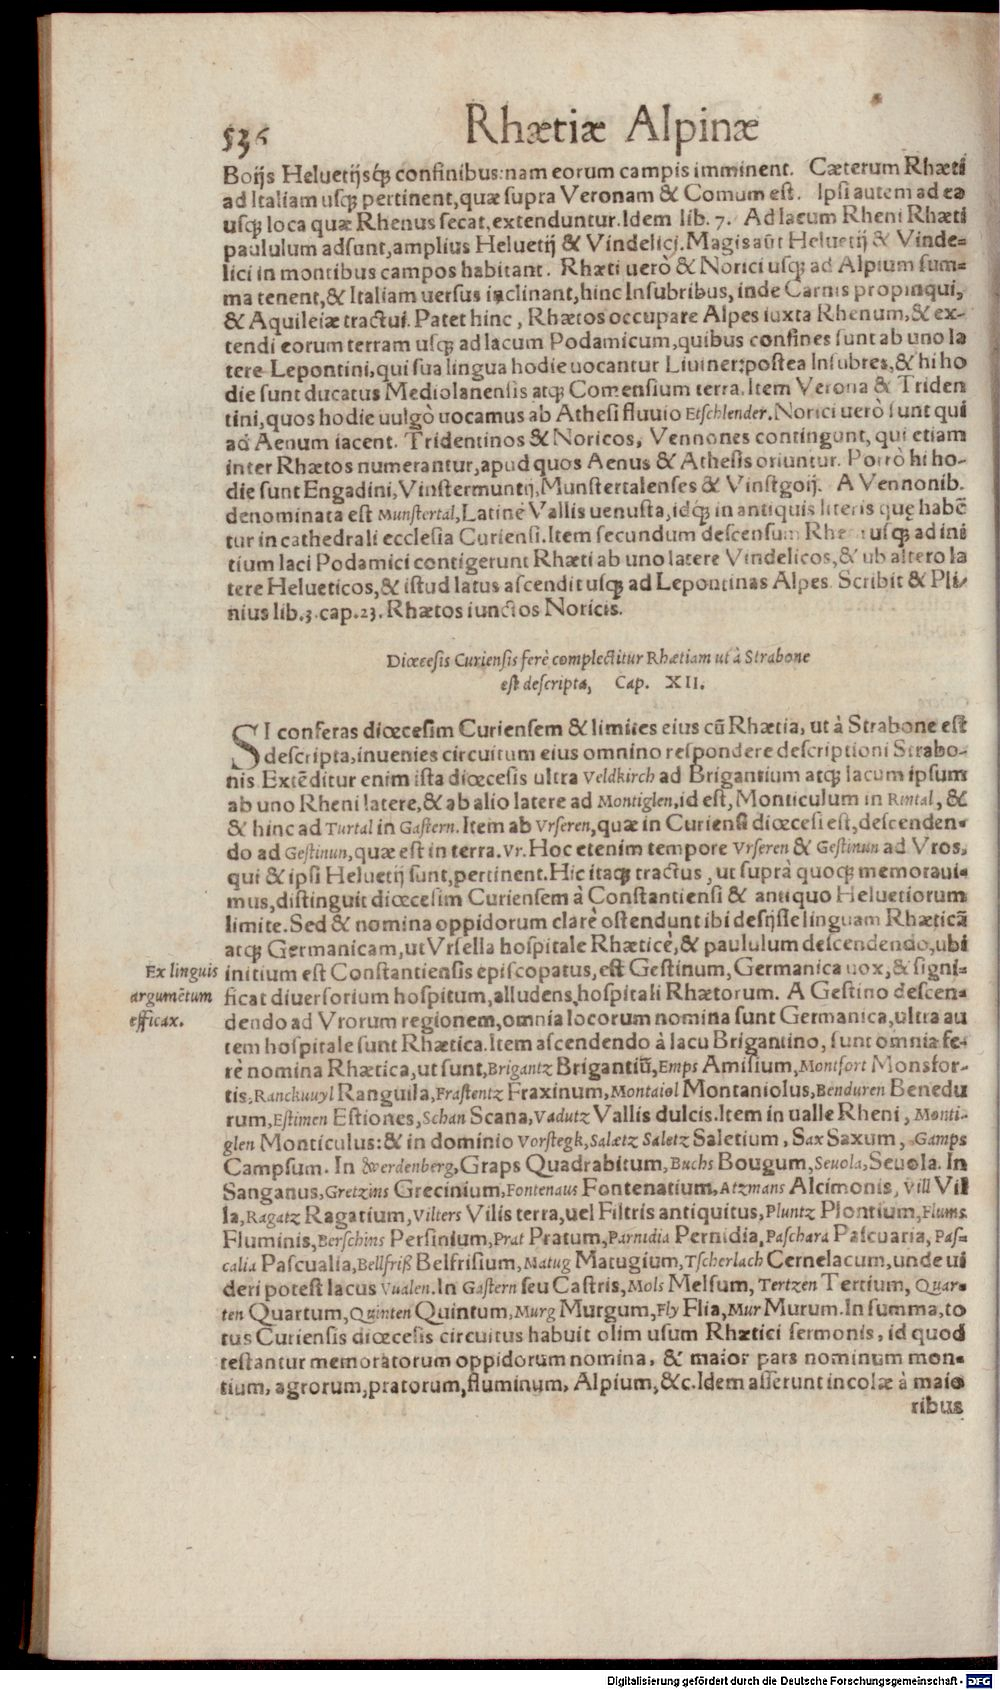 536
Rhætiæ Alpinæ
Boijs Heluetijsq́; confinibus:nam eorum campis imminent. Cæterum Rhæti
ad Italiam usq; pertinent,quæ supra Veronam & Comum est. Ipsi autem ad ea
usq; loca quæ Rhenus secat,extenduntur.Idem lib.7. Ad lacum Rheni Rhæti
paululum adsunt,amplius Heluetij & Vindelici.Magis aūt Heluetij & Vinde=
lici in montibus campos habitant. Rhæti uerò & Norici usq; ad Alpium sum=
ma tenent,& Italiam uersus inclinant,hinc Insubribus, inde Carnis propinqui,
& Aquileiæ tractui. Patet hinc, Rhætos occupare Alpes iuxta Rhenum,& ex-
tendi eorum terram usq; ad lacum Podamicum,quibus confines sunt ab uno la
tere Lepontini,qui sua lingua hodie uocantur Liuiner:postea Insubres,& hi ho
die sunt ducatus Mediolanensis atq; Comensium terra.Item Verona & Triden
tini,quos hodie uulgò uocamus ab Athesi fluuio Etschlender.Norici uerò sunt qui
ad Aenum iacent. Tridentinos & Noricos, Vennones contingunt, qui etiam
inter Rhætos numerantur,apud quos Aenus & Athesis oriuntur. Porrò hi ho-
die sunt Engadini,Vinstermuntij,Munstertalenses & Vinstgoij. A Vennonib.
denominata est Munstertal,Latine Vallis uenusta,idq; in antiquis literis quę habē
tur in cathedrali ecclesia Curiensi.Item secundum descensum Rheni usq; ad ini
tium laci Podamici contigerunt Rhæti ab uno latere Vindelicos,& ab altero la
tere Helueticos,& istud latus ascendit usq; ad Lepontinas Alpes. Scribit & Pli-
nius lib.3.cap.23. Rhætos iunctos Noricis.
Diœcesis Curiensis ferè complectitur Rhætiam ut à Strabone
est descripta, Cap. XII.
SI conferas diœcesim Curiensem & limites eius cū Rhætia, ut à Strabone est
descripta,inuenies circuitum eius omnino respondere descriptioni Strabo-
nis. Extēditur enim ista diœcesis ultra Veldkirch ad Brigantium atq; lacum ipsum
ab uno Rheni latere,& ab alio latere ad Montiglen,id est, Monticulum in Rintal, &
& hinc ad Turtal in Gastern.Item ab Vrseren,quæ in Curiensi diœcesi est,descenden=
do ad Gestinun,quæ est in terra.Vr.Hoc etenim tempore Vrseren & Gestinun ad Vros,
qui & ipsi Heluetij sunt,pertinent.Hic itaq; tractus, ut suprà quoq; memoraui=
mus,distinguit diœcesim Curiensem à Constantiensi & antiquo Heluetiorum
limite.Sed & nomina oppidorum clarè ostendunt ibi desijsse linguam Rhæticā
atq; Germanicam,ut Vrsella hospitale Rhæticè,& paululum descendendo,ubi
initium est Constantiensis episcopatus,est Gestinum,Germanica uox,& signi=
ficat diuersorium hospitum,alludens hospitali Rhætorum. A Gestino descen=
dendo ad Vrorum regionem,omnia locorum nomina sunt Germanica,ultra au
tem hospitale sunt Rhætica.Item ascendendo à lacu Brigantino, sunt omnia fe=
rè nomina Rhætica,ut sunt,Brigantz Brigantiū,Emps Amisium,Montfort Monsfor=
tis,Ranckuuyl Ranguila,Frastentz Fraxinum,Montaiol Montaniolus,Benduren Benedu
rum,Estimen Estiones,Schan Scana,Vadutz Vallis dulcis.Item in ualle Rheni, Monti-
glen Monticulus:& in dominio Vorstegk,Salætz Saletz Saletium, Sax Saxum, Gamps
Campsum. In Werdenberg,Graps Quadrabitum,Buchs Bougum,Seuola,Seuola. In
Sanganus,Gretzins Grecinium,Fontenaus Fontenatium,Atzmans Alcimonis, Vill Vil
la,Ragatz Ragatium,Vilters Vilis terra,uel Filtris antiquitus,Pluntz Plontium,Flums
Fluminis,Berschins Persinium,Prat Pratum,Parnidia Pernidia,Paschara Pascuaria, Pas=
calia Pascualia,Bellfriß Belfrisium,Matug Matugium,Tscherlach Cernelacum,unde ui
deri potest lacus Vualen.In Gastern seu Castris,Mols Melsum,Tertzen Tertium, Quar=
ten Quartum,Quinten Quintum,Murg Murgum,Fly Flia,Mur Murum.In summa,to
tus Curiensis diœcesis circuitus habuit olim usum Rhætici sermonis, id quod
testantur memoratorum oppidorum nomina, & maior pars nominum mon=
tium, agrorum,pratorum,fluminum, Alpium,&c.Idem asserunt incolæ à maio
ribus
Ex linguis
argumētum
efficax.
Digitalisierung gefördert durch die Deutsche Forschungsgemeinschaft - DFG